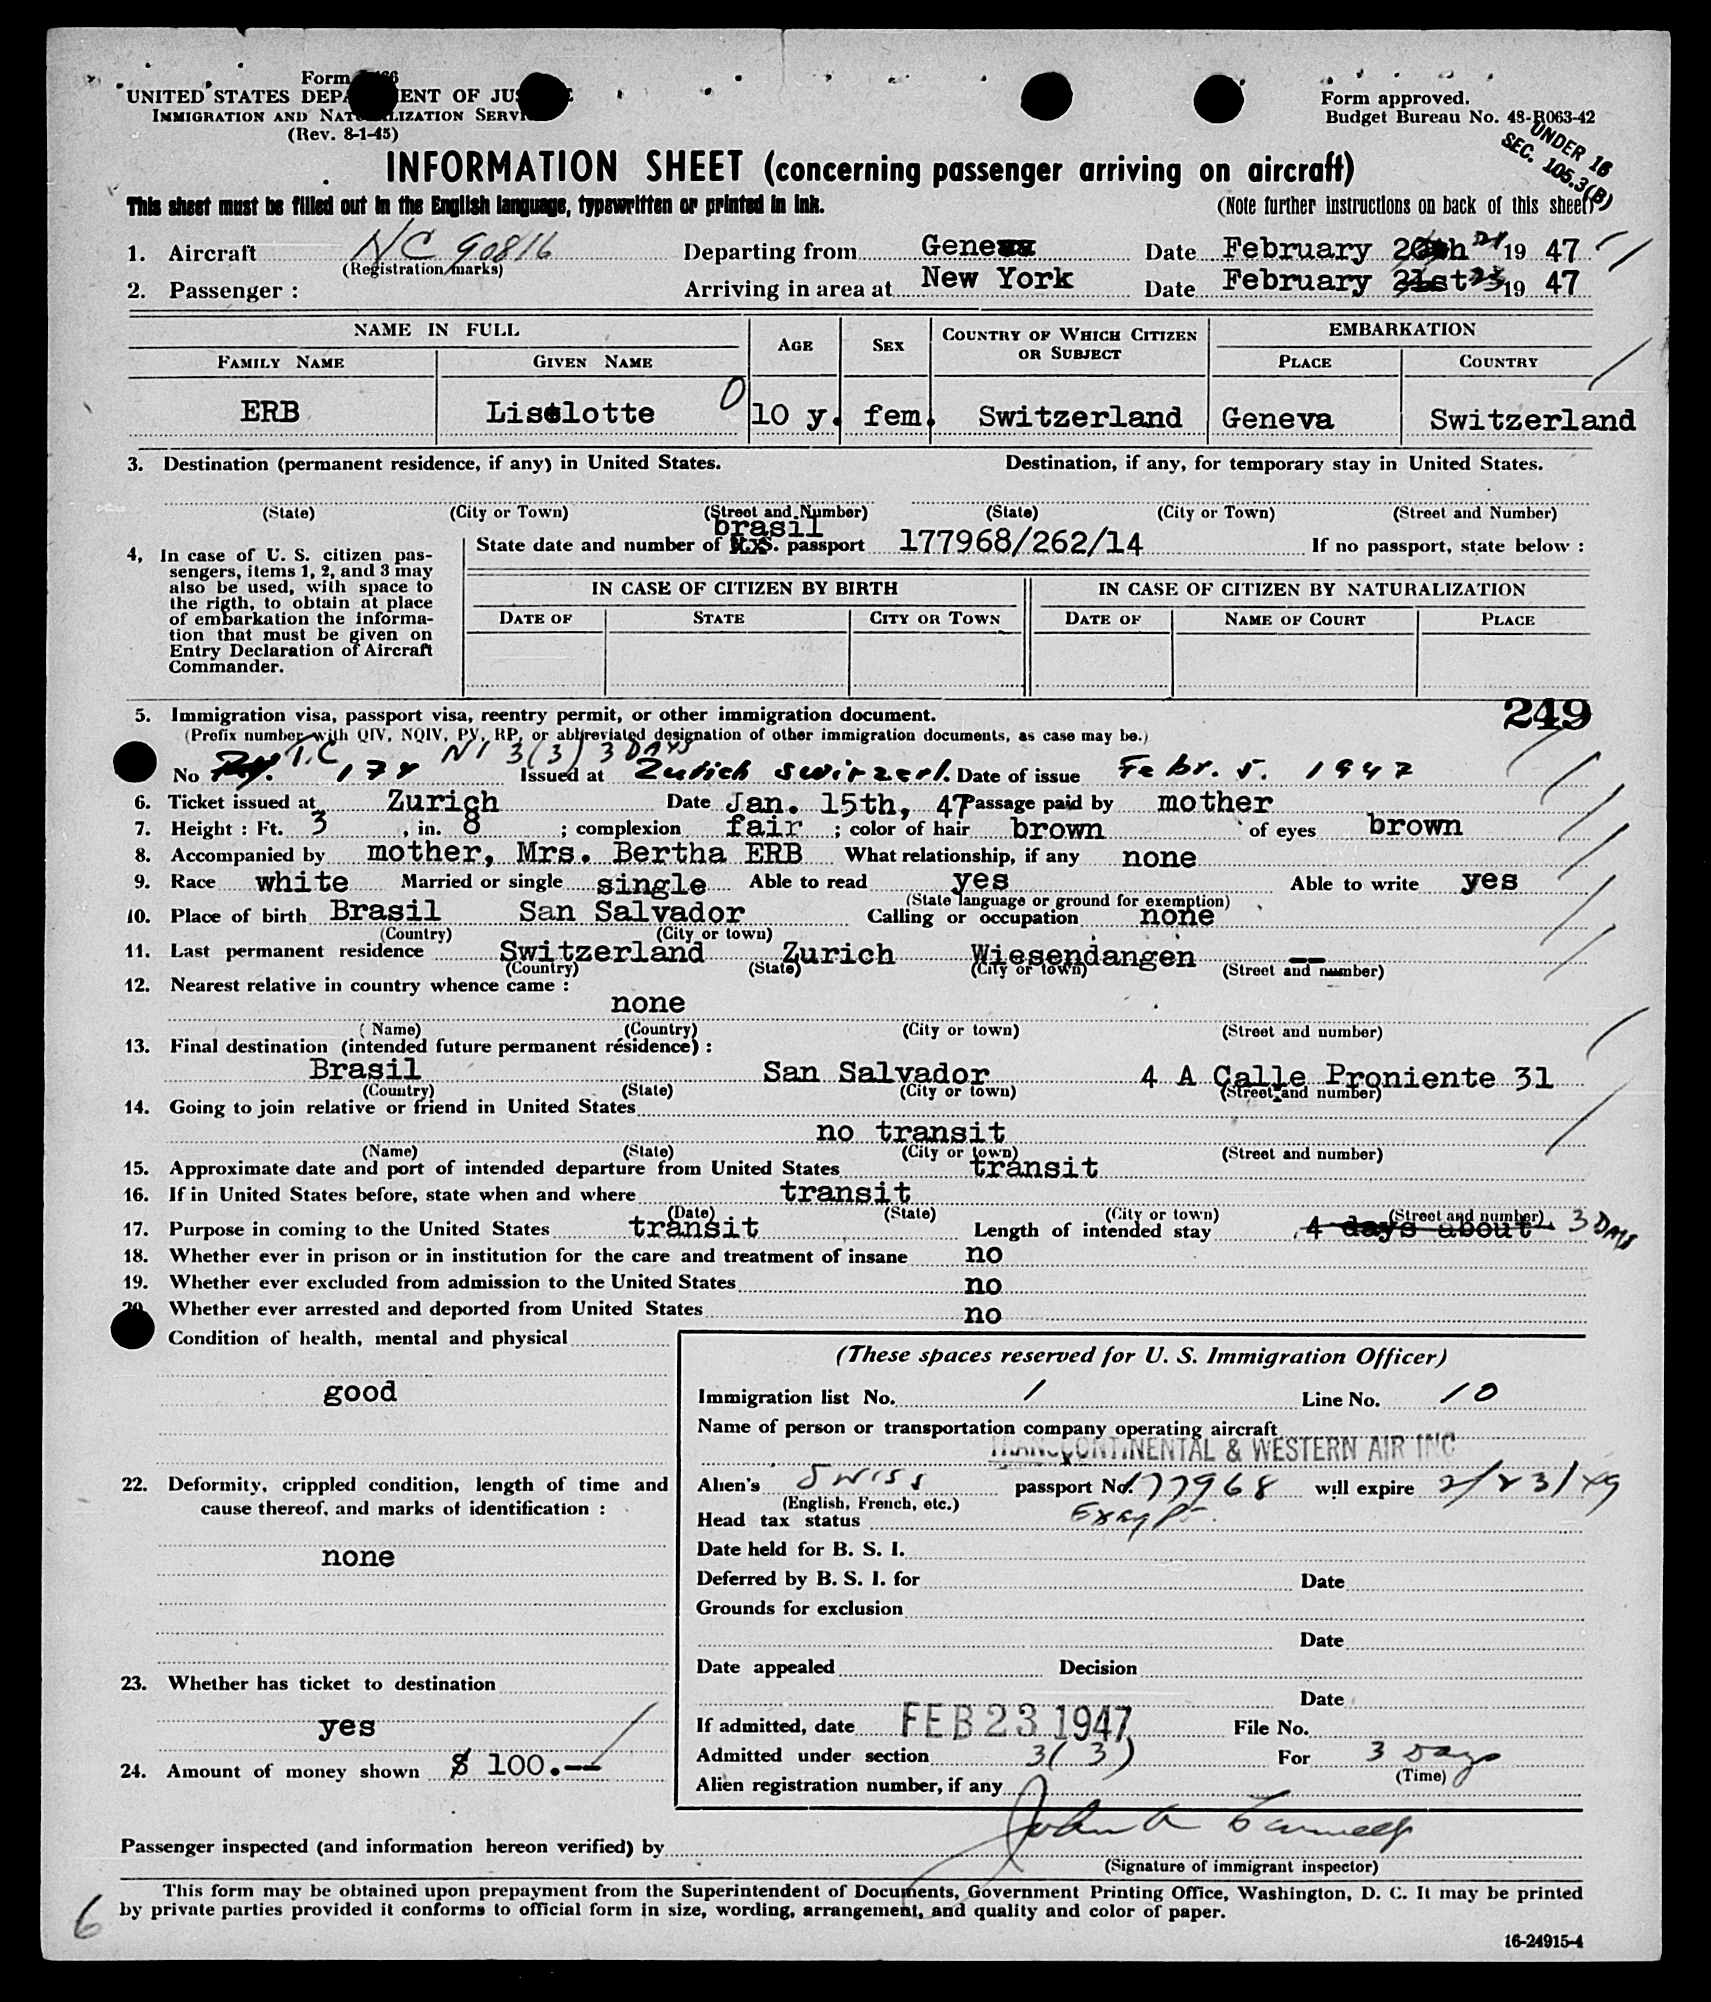 Form
UNITED STATES DEPARTMENT OF JUSTICE
IMMIGRATION AND NATURALIZATION SERVICE
(Rev. 8-1-45)
Form approved.
Budget Bureau No. 43-R063-42
UNDER 16
SEC. 105.3(B)
INFORMATION SHEET (concerning passenger arriving on aircraft)
This sheet must be filled out in the English language, typewritten or printed in ink.
(Note further instructions on back of this sheet)
1. Aircraft NC 90816 Departing from Geneva Date February 20th 21 19 47
(Registration marks)
2. Passenger : Arriving in area at New York Date February 21st 23 19 47
NAME IN FULL AGE SEX COUNTRY OF WHICH CITIZEN OR SUBJECT EMBARKATION
FAMILY NAME GIVEN NAME PLACE COUNTRY
ERB Liselotte 0 10 y. fem. Switzerland Geneva Switzerland
3. Destination (permanent residence, if any) in United States. Destination, if any, for temporary stay in United States.
(State) (City or Town) (Street and Number) (State) (City or Town) (Street and Number)
brasil
4, In case of U. S. citizen pas-
sengers, items 1, 2, and 3 may
also be used, with space to
the rigth, to obtain at place
of embarkation the informa-
tion that must be given on
Entry Declaration of Aircraft
Commander.
State date and number of U.S. passport 177968/262/14 If no passport, state below :
IN CASE OF CITIZEN BY BIRTH IN CASE OF CITIZEN BY NATURALIZATION
DATE OF STATE CITY OR TOWN DATE OF NAME OF COURT PLACE
249
5. Immigration visa, passport visa, reentry permit, or other immigration document.
(Prefix number with QIV, NQIV, PV, RP, or abbreviated designation of other immigration documents, as case may be.)
T.C NI 3(3) 3 DAYS
No 174 Issued at Zurich Switzerl. Date of issue Febr. 5. 1947
6. Ticket issued at Zurich Date Jan. 15th, 47 Passage paid by mother
7. Height : Ft. 3 , in. 8 ; complexion fair ; color of hair brown of eyes brown
8. Accompanied by mother, Mrs. Bertha ERB What relationship, if any none
9. Race white Married or single single Able to read yes Able to write yes
(State language or ground for exemption)
10. Place of birth Brasil San Salvador Calling or occupation none
(Country) (City or town)
11. Last permanent residence Switzerland Zurich Wiesendangen --
(Country) (State) (City or town) (Street and number)
12. Nearest relative in country whence came :
none
( Name) (Country) (City or town) (Street and number)
13. Final destination (intended future permanent residence) :
Brasil San Salvador 4 A Calle Proniente 31
(Country) (State) (City or town) (Street and number)
14. Going to join relative or friend in United States
no transit
(Name) (State) (City or town) (Street and number)
15. Approximate date and port of intended departure from United States transit
16. If in United States before, state when and where transit
(Date) (State) (City or town) (Street and number)
17. Purpose in coming to the United States transit Length of intended stay 4 days about 3 DAYS
18. Whether ever in prison or in institution for the care and treatment of insane no
19. Whether ever excluded from admission to the United States no
20. Whether ever arrested and deported from United States no
Condition of health, mental and physical
good
22. Deformity, crippled condition, length of time and
cause thereof, and marks of identification :
none
23. Whether has ticket to destination
yes
24. Amount of money shown $ 100.--
(These spaces reserved for U. S. Immigration Officer)
Immigration list No. 1 Line No. 10
Name of person or transportation company operating aircraft
TRANSCONTINENTAL & WESTERN AIR INC
Alien's Swiss passport No. 177968 will expire 2/23/49
(English, French, etc.)
Head tax status Exempt
Date held for B. S. I.
Deferred by B. S. I. for Date
Grounds for exclusion
Date
Date appealed Decision
Date
If admitted, date FEB 23 1947 File No.
Admitted under section 3(3) For 3 Days
(Time)
Alien registration number, if any
Passenger inspected (and information hereon verified) by John A
(Signature of immigrant inspector)
This form may be obtained upon prepayment from the Superintendent of Documents, Government Printing Office, Washington, D. C. It may be printed
by private parties provided it conforms to official form in size, wording, arrangement, and quality and color of paper.
6
16-24915-4